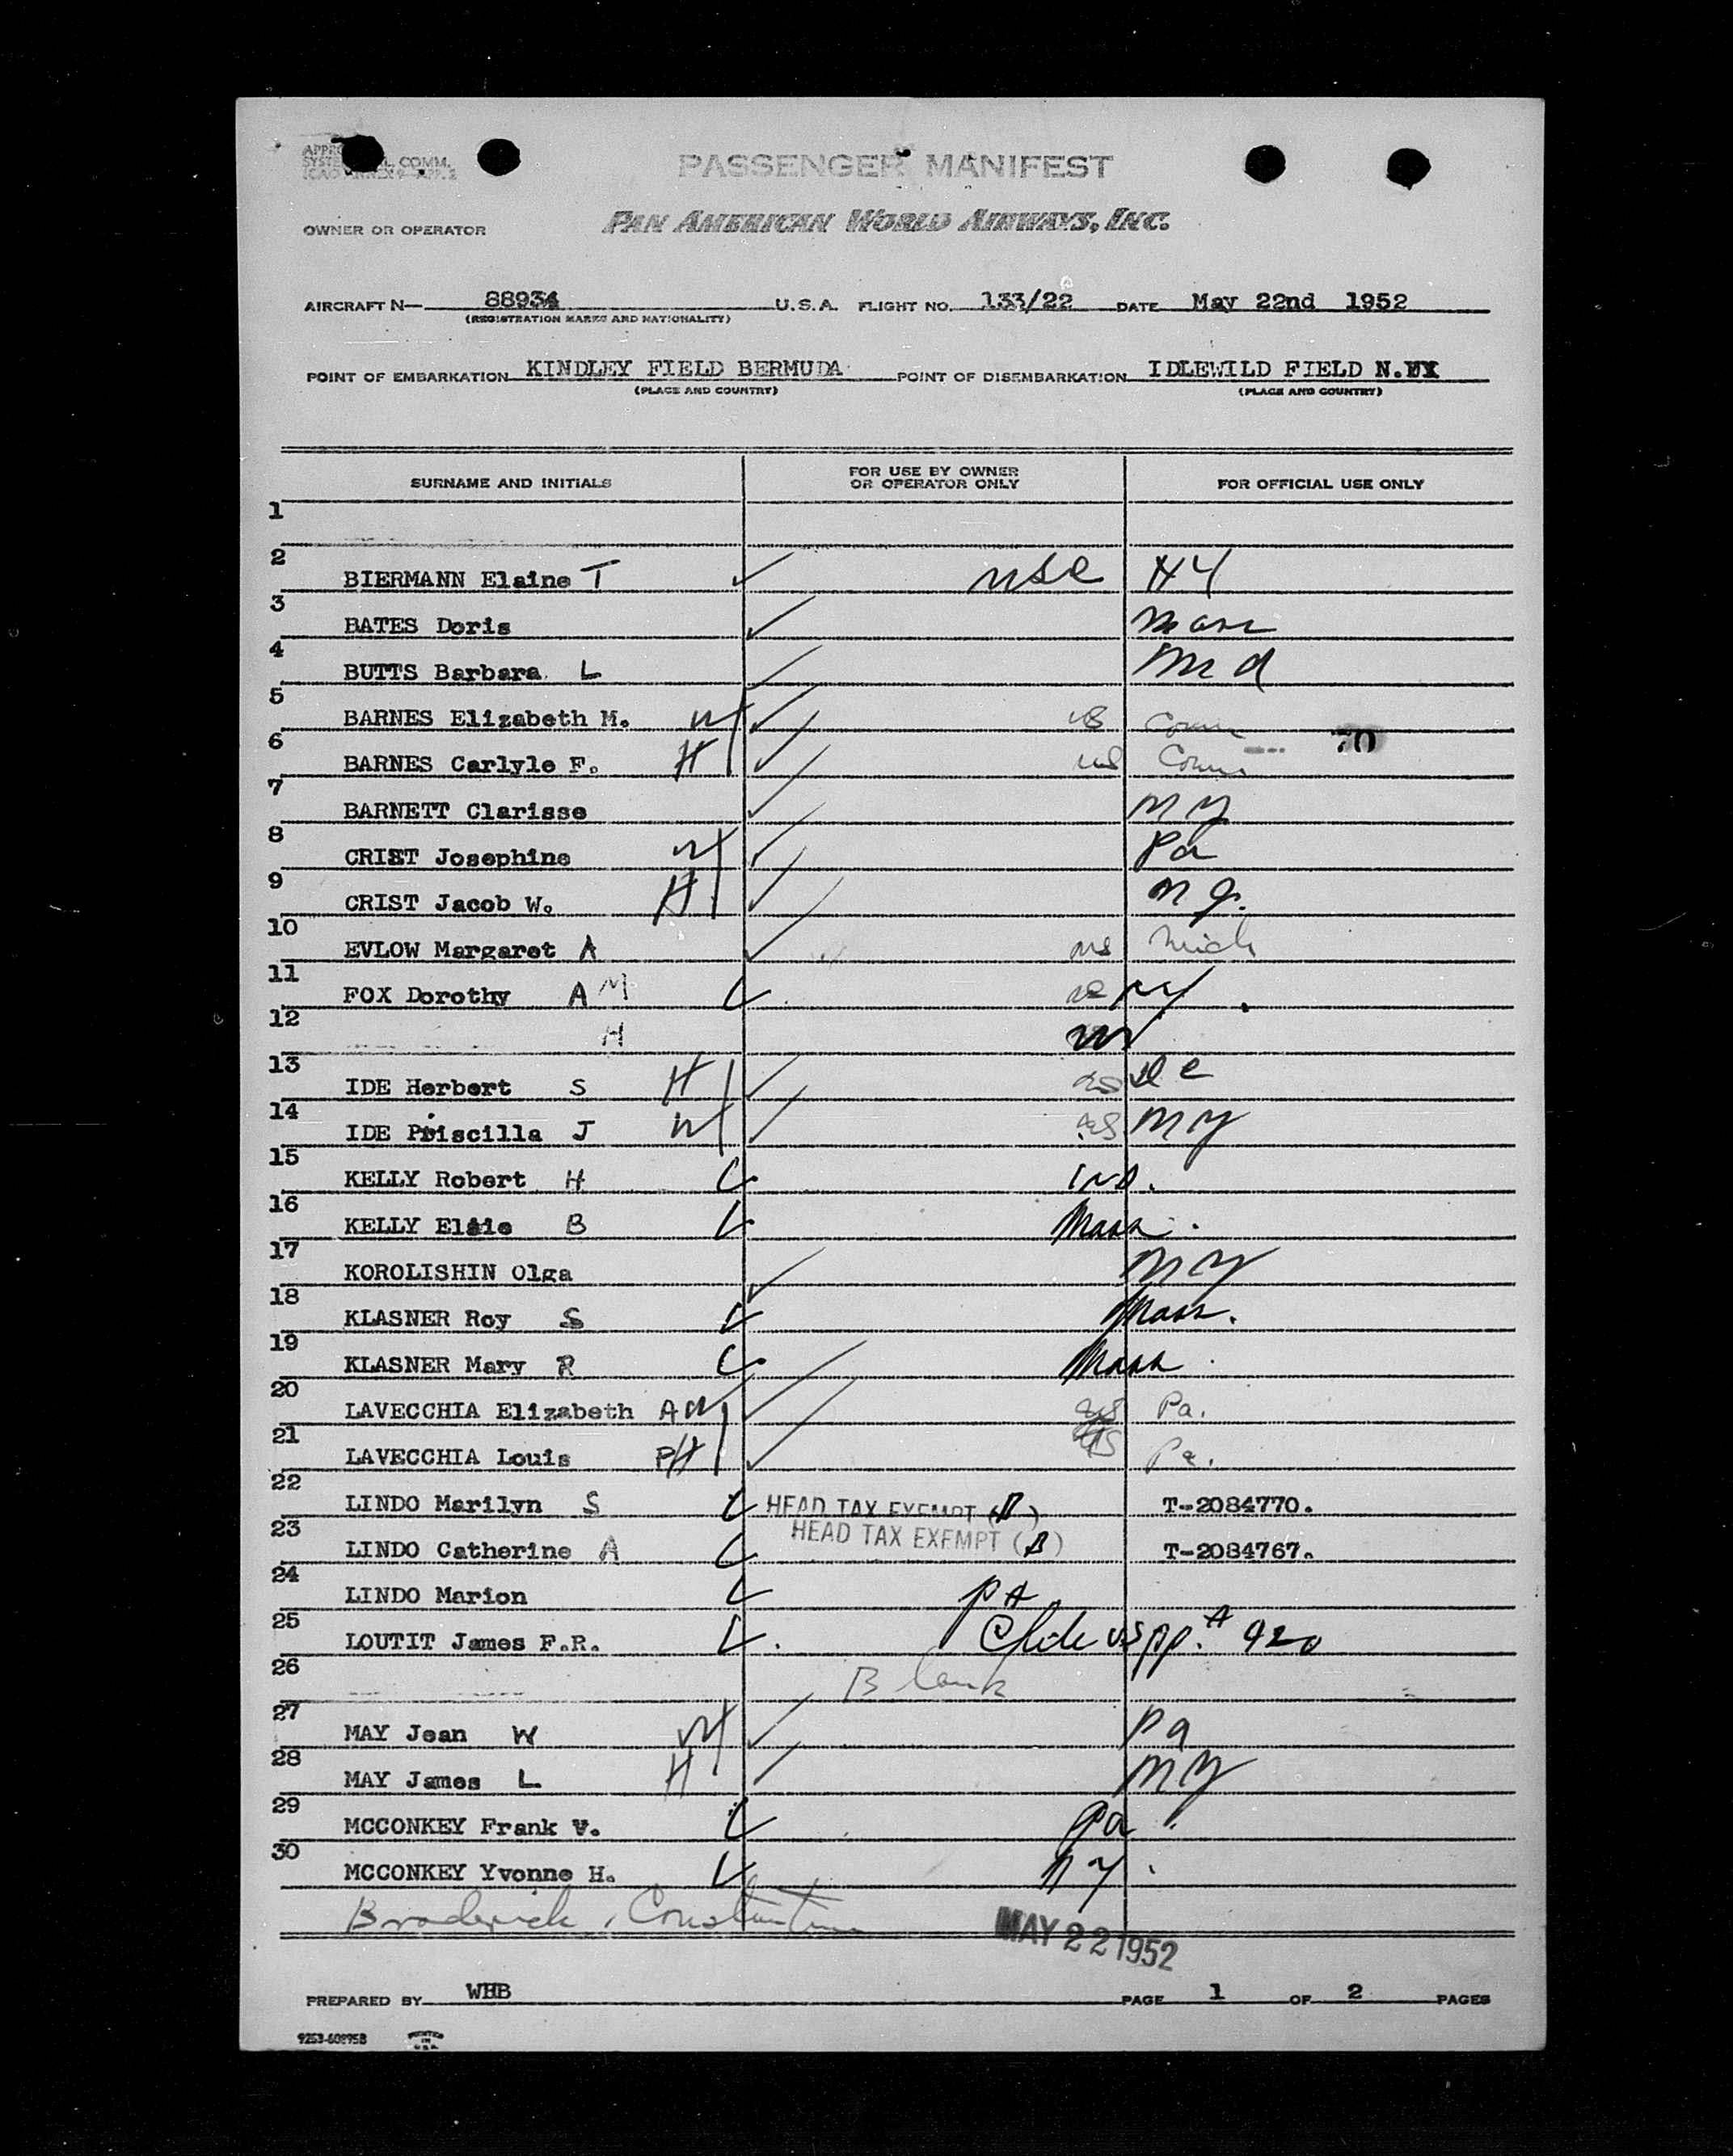 PASSENGER MANIFEST
OWNER OR OPERATOR PAN AMERICAN WORLD AIRWAYS, INC.
AIRCRAFT N— 88934 U.S.A. FLIGHT NO. 133/22 DATE May 22nd 1952
(REGISTRATION MARKS AND NATIONALITY)
POINT OF EMBARKATION KINDLEY FIELD BERMUDA POINT OF DISEMBARKATION IDLEWILD FIELD
(PLACE AND COUNTRY) (PLACE AND COUNTRY)
SURNAME AND INITIALS FOR USE BY OWNER OR OPERATOR ONLY FOR OFFICIAL USE ONLY
1
2 BIERMANN Elaine T
3 BATES Doris Mass
4 BUTTS Barbara L Md
5 BARNES Elizabeth M. W Conn
6 BARNES Carlyle F. H Conn 70
7 BARNETT Clarisse NY
8 CRIST Josephine W Pa
9 CRIST Jacob W. H NJ.
10 EVLOW Margaret A Mich
11 FOX Dorothy A NY
12
13 IDE Herbert S H
14 IDE Priscilla J W NY
15 KELLY Robert H IND.
16 KELLY Elsie B Mass.
17 KOROLISHIN Olga NY
18 KLASNER Roy S Mass.
19 KLASNER Mary R Mass.
20 LAVECCHIA Elizabeth A W Pa.
21 LAVECCHIA Louis P H Pa.
22 LINDO Marilyn S HEAD TAX EXEMPT (B) T-2084770.
23 LINDO Catherine A HEAD TAX EXEMPT (B) T-2084767.
24 LINDO Marion PA
25 LOUTIT James F.R. 920
26 Blank
27 MAY Jean W W Pa
28 MAY James L H NY
29 MCCONKEY Frank V. Pa.
30 MCCONKEY Yvonne H. NY.
Broderick,
MAY 22 1952
PREPARED BY WHB PAGE 1 OF 2 PAGES
PRINTED IN U.S.A.